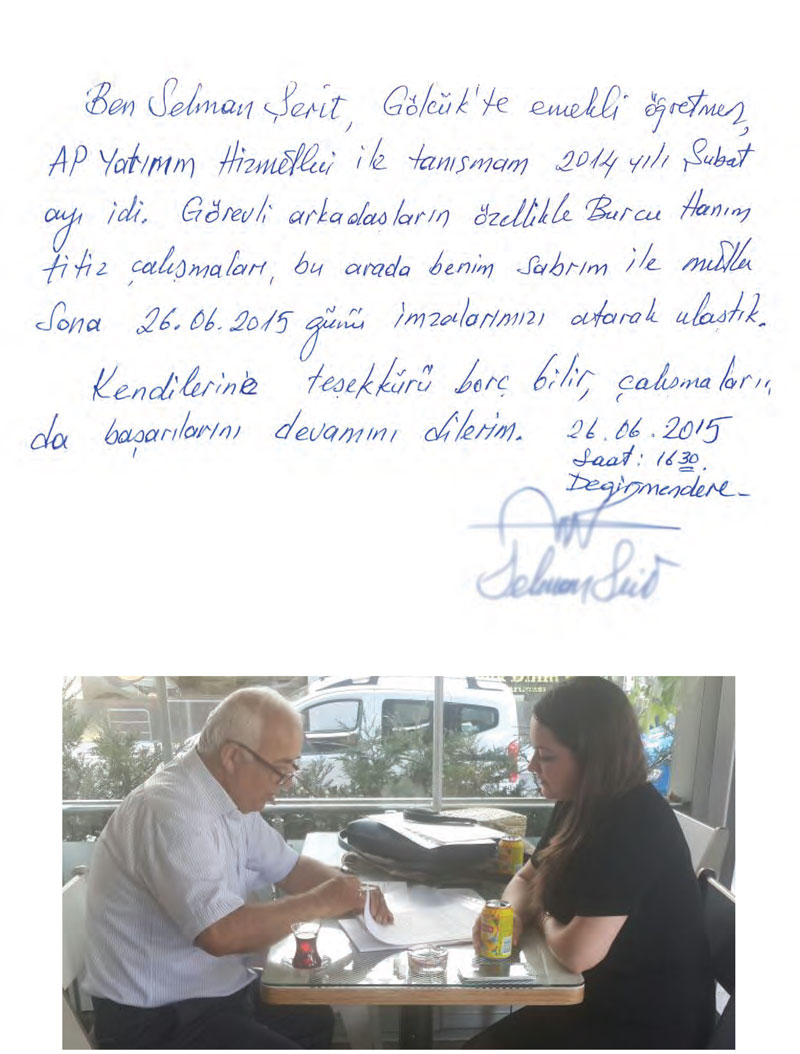 Ben Selman Şerit, Gölcük'te emekli öğretmen,
AP Yatırım Hizmetleri ile tanışmam 2014 yılı Şubat
ayı idi. Görevli arkadaşların özellikle Burcu Hanım
titiz çalışmaları, bu arada benim sabrım ile mutlu
Sona 26.06.2015 günü imzalarımızı atarak ulaştık.
Kendilerine teşekkürü borç bilir, çalışmaların
da başarılarını devamını dilerim. 26.06.2015
Saat: 16 30.
Değirmendere
Selman Şerit